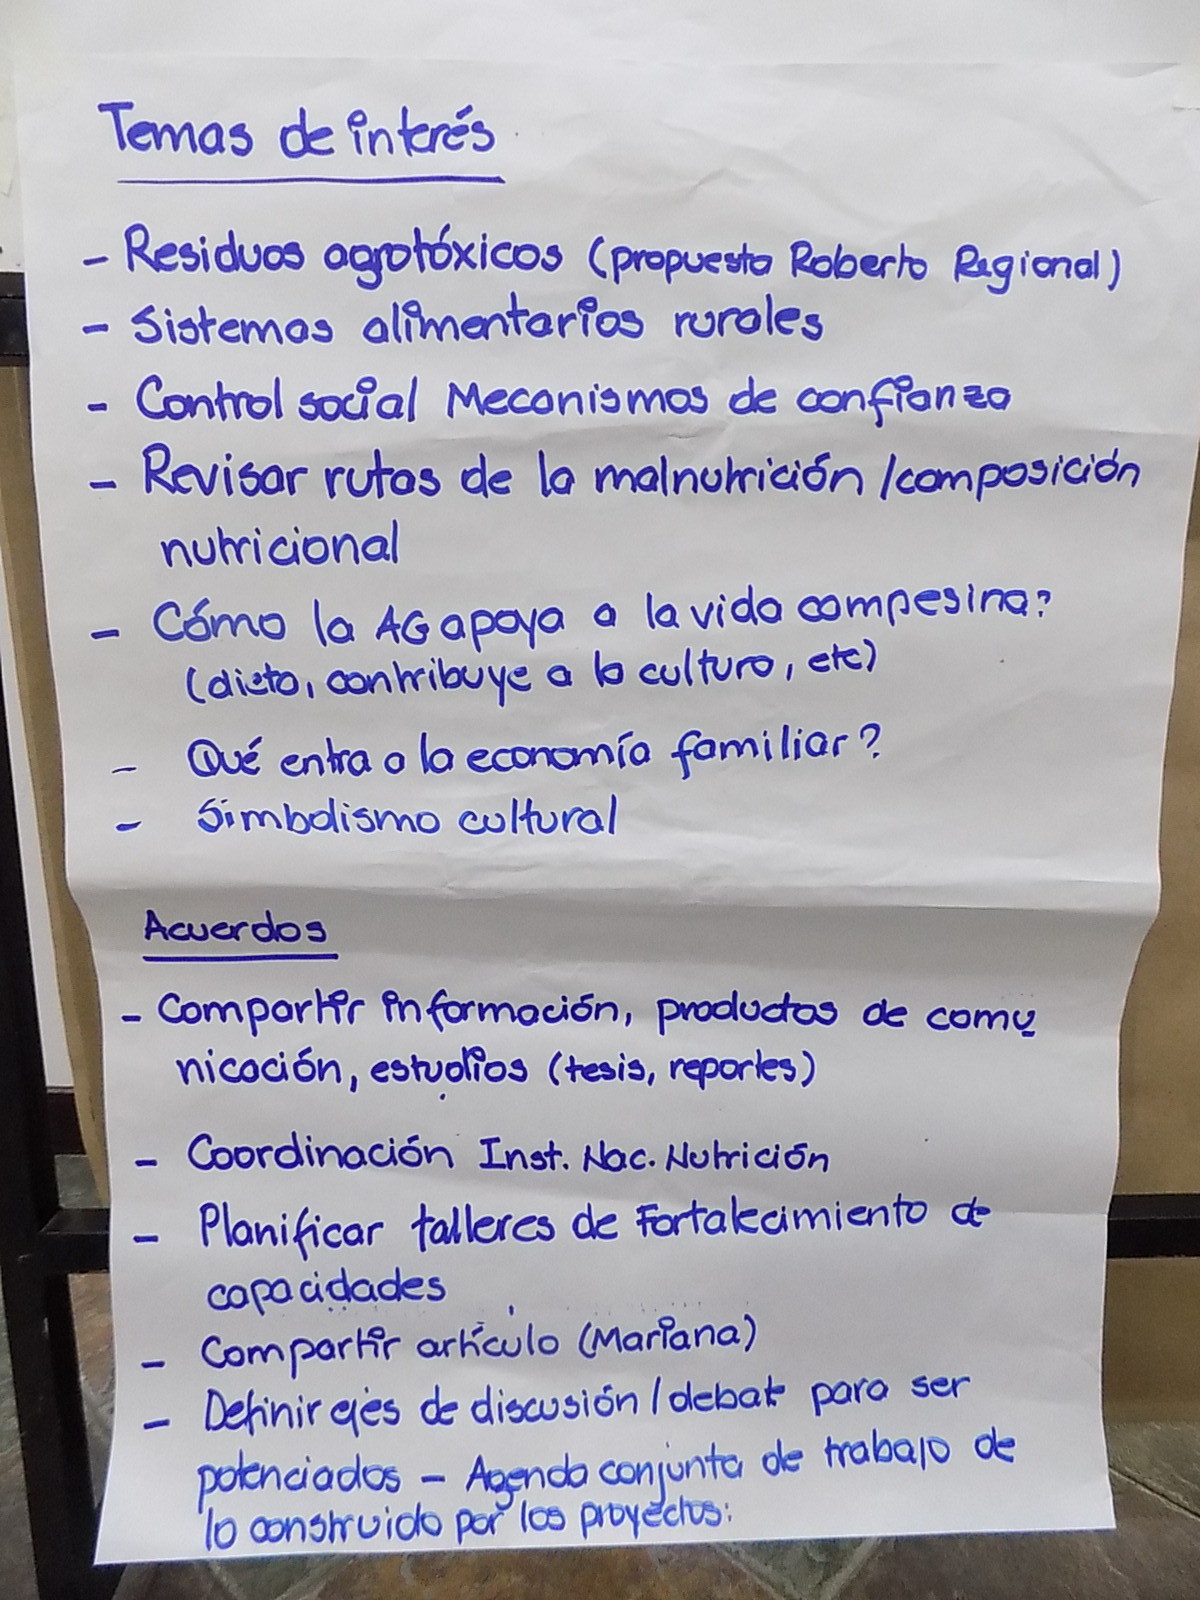 Temas de interés
- Residuos agrotóxicos (propuesta Roberto Regional)
- Sistemas alimentarios rurales
- Control social Mecanismos de confianza
- Revisar rutas de la malnutrición /composición
nutricional
- Cómo la AG apoya a la vida campesina?
(dieta, contribuye a la cultura, etc)
- Qué entra a la economía familiar?
- Simbolismo cultural
Acuerdos
- Compartir información, productos de comu
nicación, estudios (tesis, reportes)
- Coordinación Inst. Nac. Nutrición
- Planificar talleres de Fortalecimiento de
capacidades
- Compartir artículo (Mariana)
- Definir ejes de discusión / debate para ser
potenciados - Agenda conjunta de trabajo de
lo construido por los proyectos: